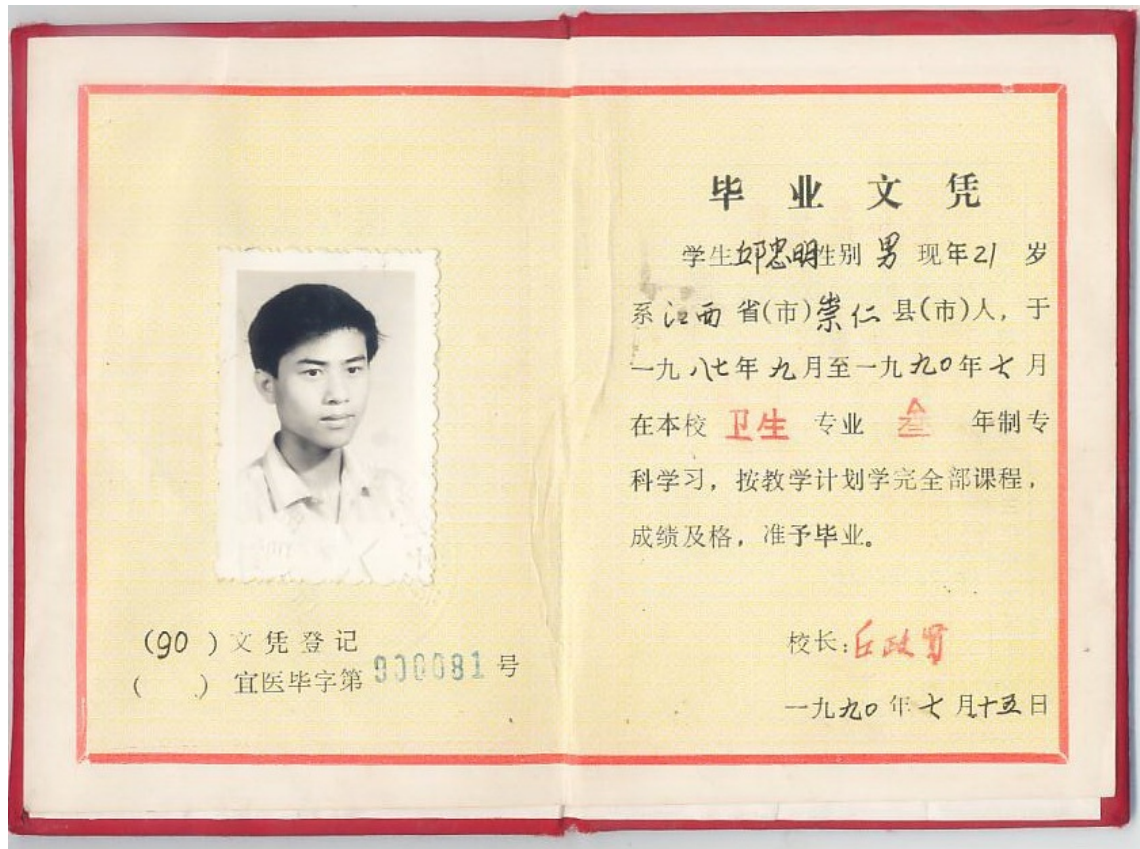 (90 ) 文凭登记
( ) 宜医毕字第 900081 号
毕业文凭
学生 邱忠明 性别 男 现年 21 岁
系 江西 省(市) 崇仁 县(市)人，于
一九 八七 年 九 月至一九 九〇 年 七 月
在本校 卫生 专业 叁 年制专
科学习，按教学计划学完全部课程，
成绩及格，准予毕业。
校长：丘政贤
一九 九〇 年 七 月 十五 日